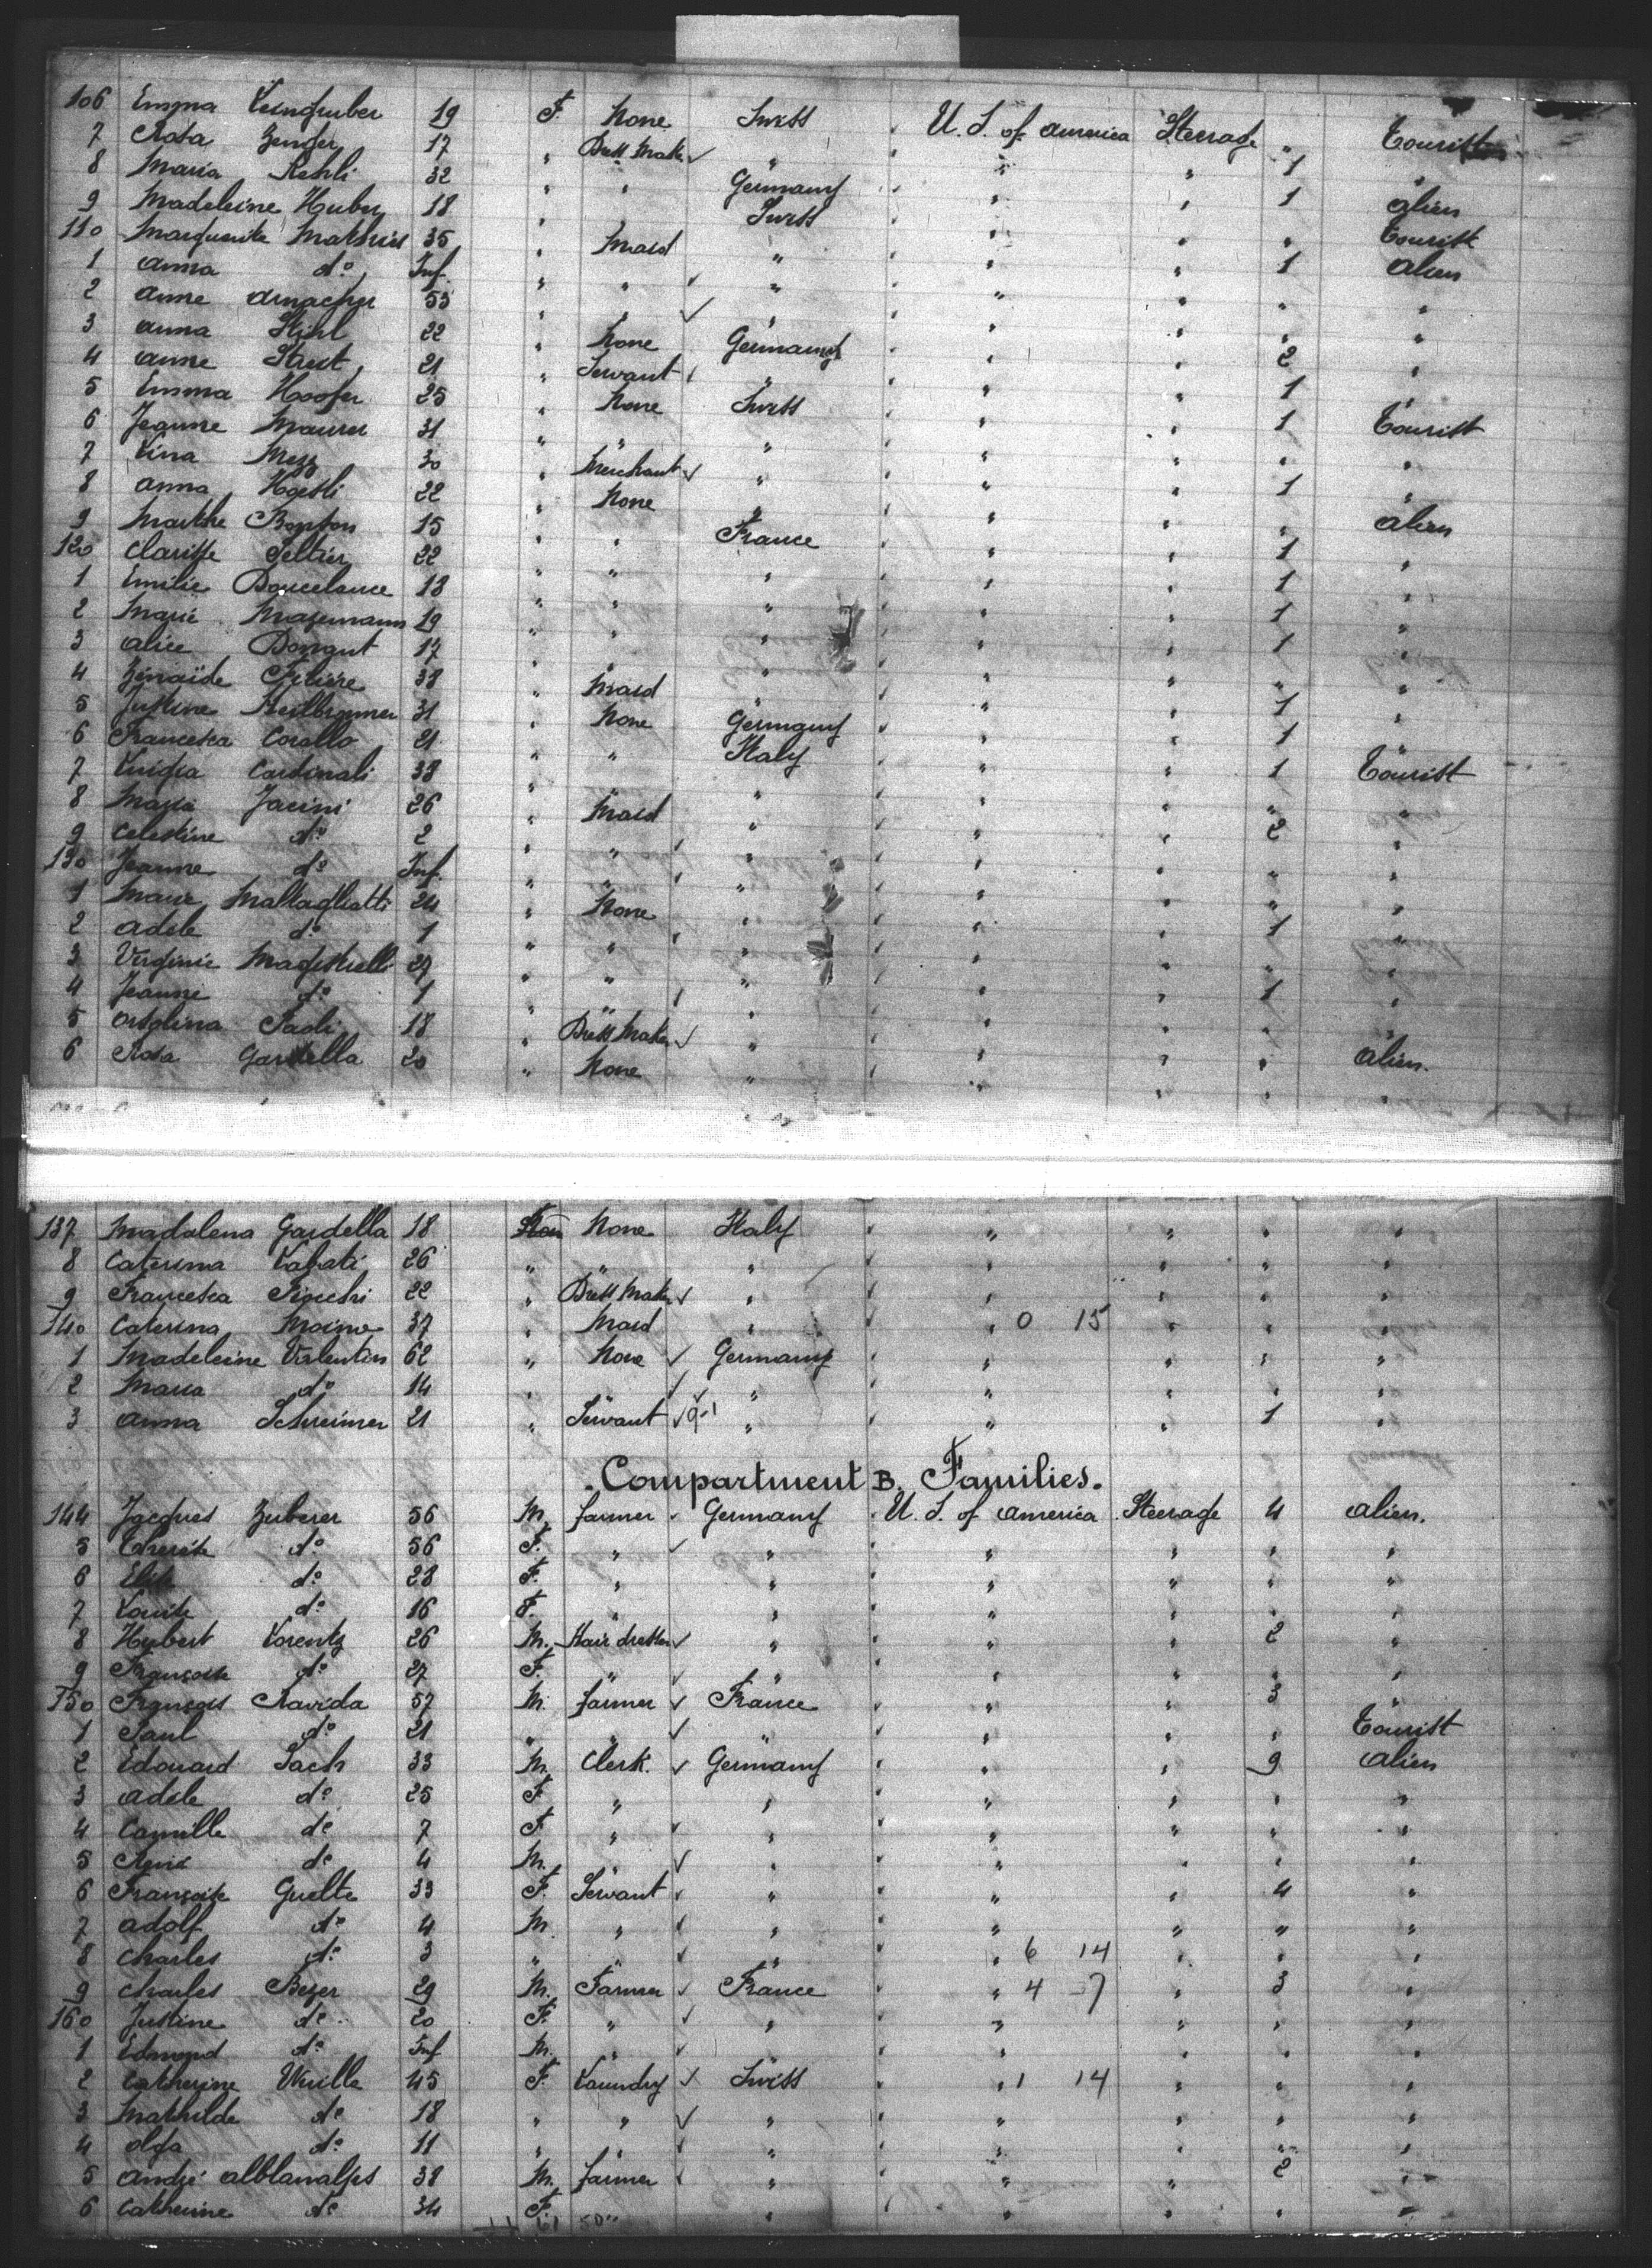 106 Emma 19 F. None Swiss U. S. of America Steerage " Tourist
7 Rosa Zenger 17 " Dress Maker " " " 1 "
8 Maria Stehli 32 " " Germany " " 1 alien
9 Madeleine Huber 18 " " Swiss " " " Tourist
110 Marguerite Mathis 35 " Maid " " " 1 alien
1 Anna do Inf. " " " " " " "
2 Anne Amacher 53 " " " " " " "
3 Anna 22 " None Germany " " 2 "
4 Anne 21 " Servant " " " 1 "
5 Emma Hoofer 25 " None Swiss " " 1 Tourist
6 Jeanne Maurer 31 " " " " " " "
7 Lina 30 " Merchant " " " 1 "
8 Anna Hoesli 22 " None " " " " alien
9 Marthe 15 " " France " " 1 "
120 Clarisse Peltier 22 " " " " " 1 "
1 Emilie 18 " " " " " 1 "
2 Marie 19 " " " " " 1 "
3 Alice 17 " " " " " " "
4 Zénaïde 38 " Maid " " " 1 "
5 Justine Heilbronner 31 " None Germany " " 1 "
6 Francesca Corallo 21 " " Italy " " 1 Tourist
7 Luigia Cardinali 38 " " " " " " "
8 Maria Jacini 26 " Maid " " " 2 "
9 Celestine do 2 " " " " " " "
130 Jeanne do Inf. " " " " " " "
1 Marie 24 " None " " " 1 "
2 Adele do 1 " " " " " " "
3 Virginie Magistrelli 27 " " " " " 1 "
4 Jeanne do 1 " " " " " " "
5 Orsolina Paoli 18 " Dress Maker " " " " alien.
6 Rosa Gardella 20 " None " " " " "
137 Madalena Gardella 18 None Italy " " " "
8 Caterina 26 " " " " " " "
9 Francesca 22 " Dress Maker " " " " "
140 Caterina Moino 37 " Maid " " 0 15 " " "
1 Madeleine Valentin 62 " None Germany " " " "
2 Maria do 14 " " " " " " "
3 Anna Schreiner 21 " Servant " " " 1 "
Compartment B. Families.
144 Jacques Zuberer 56 M. farmer Germany U. S. of America Steerage 4 alien.
5 do 56 F. " " " " " "
6 Elise do 28 F. " " " " " "
7 Louise do 16 F. " " " " " "
8 Hubert Lorentz 26 M. Hair dresser " " " 2 "
9 Françoise do 27 F. " " " " " "
150 François Ravida 57 M. farmer France " " 3 "
1 Paul do 21 " " " " " " Tourist
2 Edouard Sach 33 M. Clerk. Germany " " 9 alien
3 Adèle do 25 F. " " " " " "
4 Camille do 7 F. " " " " " "
5 René do 4 M. " " " " "
6 Françoise Guelte 33 F. Servant " " " 4 "
7 Adolf do 4 M. " " " " " "
8 Charles do 3 " " " " 6 14 " " "
9 Charles Beyer 29 M. Farmer France " 4 -7 " 3 "
160 Justine do 20 F. " " " " " "
1 Edmond do Inf M. " " " " "
2 Catherine 45 F. Laundry Swiss " 1 14 " " "
3 Mathilde do 18 " " " " " " "
4 Olga do 11 " " " " " "
5 André 38 M. farmer " " " 2 "
6 Catherine do 34 F. " " " " "